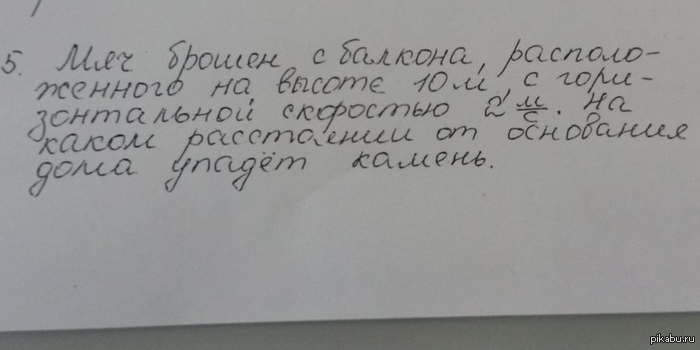 5. Мяч брошен с балкона, располо-
женного на высоте 10м, с гори-
зонтальной скоростью 2 м/с. На
каком расстоянии от основания
дома упадёт камень.
pikabu.ru